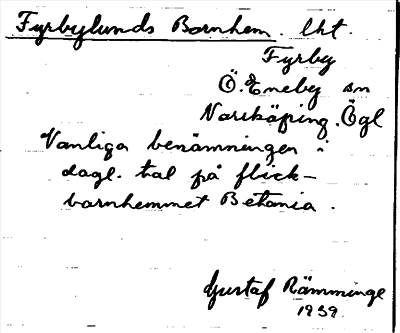 Fyrbylunds Barnhem. lht.
Fyrby
Ö. Eneby sn
Norrköping. Ögl
Vanliga benämningen i
dagl. tal på flick-
barnhemmet Betania.
Gustaf Rämminge
1939